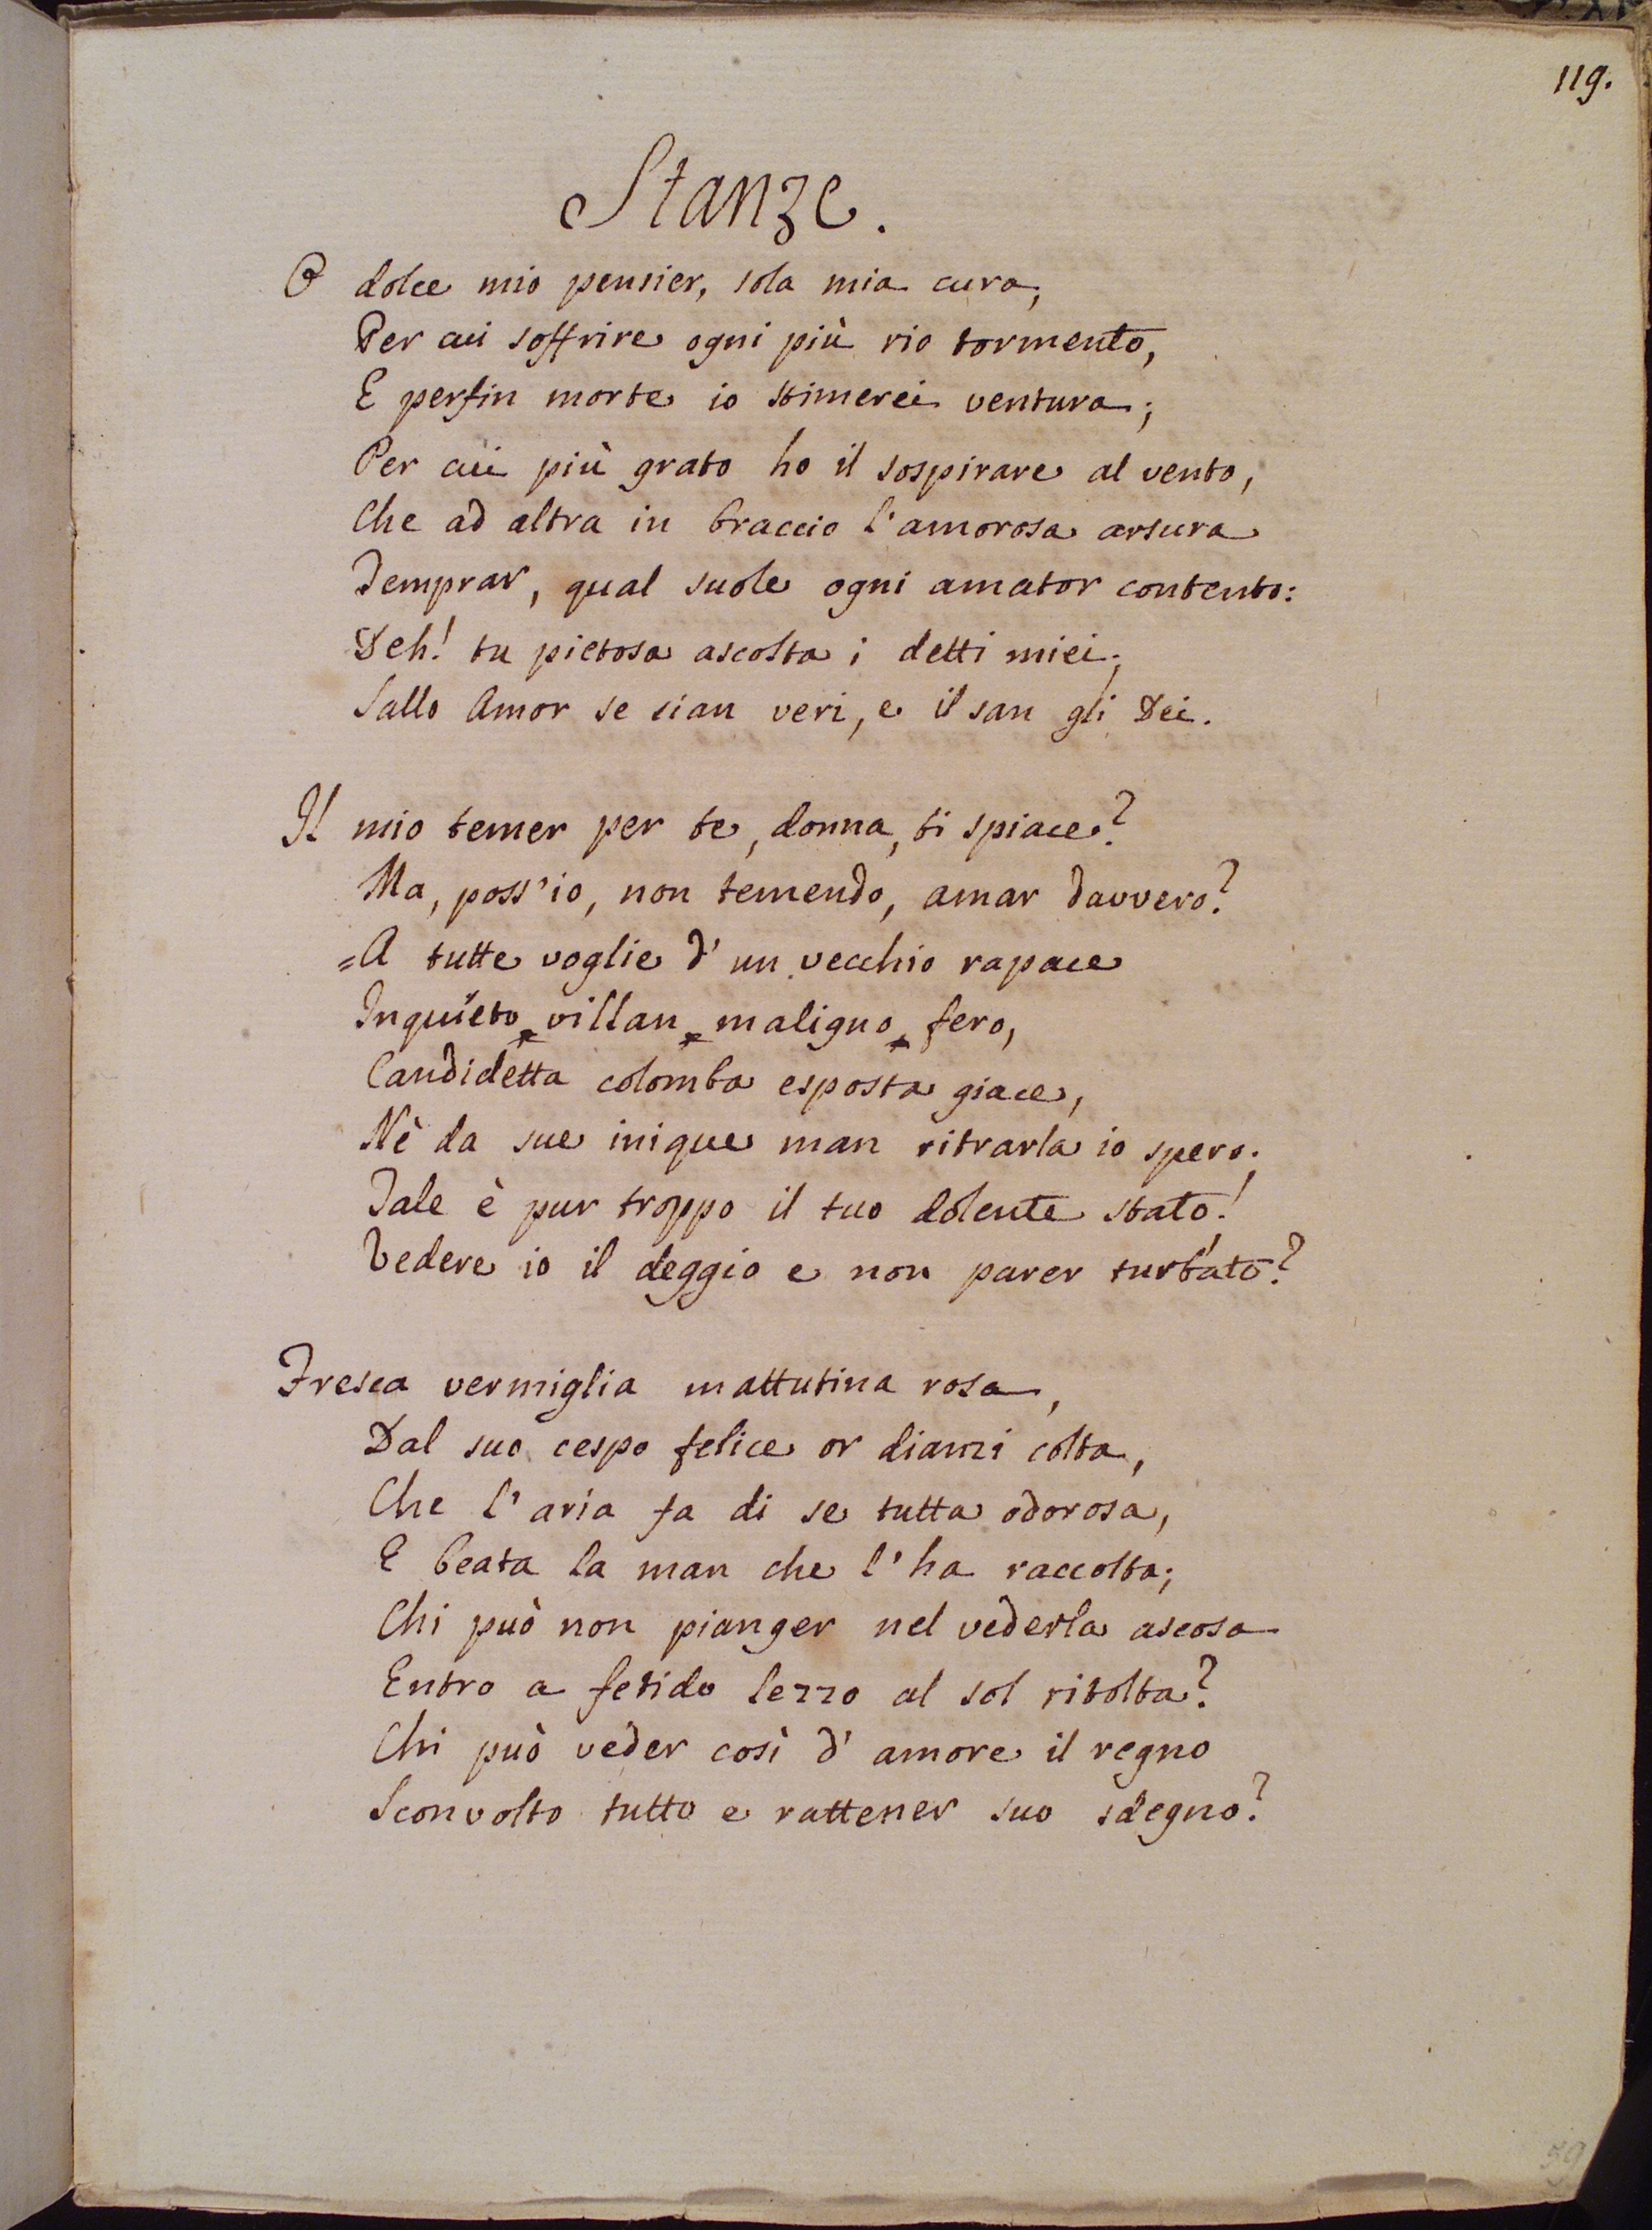 119.
Stanze.
O dolce mio pensier, sola mia cura,
Per cui soffrire ogni più rio tormento,
E perfin morte io stimerei ventura;
Per cui più grato ho il sospirare al vento,
Che ad altra in braccio l'amorosa arsura
Temprar, qual suole ogni amator contento:
Deh! tu pietosa ascolta i detti miei;
Sallo Amor se sian veri, e il san gli Dei.
Il mio temer per te, donna, ti spiace?
Ma, poss'io, non temendo, amar davvero?
=A tutte voglie d'un vecchio rapace
Inquïeto villan maligno fero,
Candidetta colomba esposta giace,
Nè da sue inique man ritrarla io spero;
Tale è pur troppo il tuo dolente stato!
Vedere io il deggio e non parer turbato?
Fresca vermiglia mattutina rosa,
Dal suo cespo felice or dianzi colta,
Che l'aria fa di se tutta odorosa,
E beata la man che l'ha raccolta;
Chi può non pianger nel vederla ascosa
Entro a fetido lezzo al sol ritolta?
Chi può veder così d'amore il regno
Sconvolto tutto e rattener suo sdegno?
59